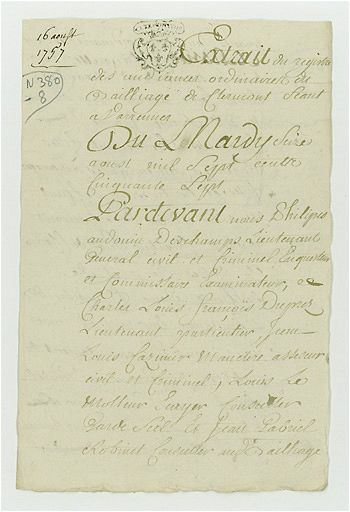 16 aoust
1757
N 380
-8
Extrait du registre
des audiances ordinaires du
Bailliage de Clermont Seant
a Varennes
Du Mardy Seize
aoust mil Sept cents
Cinquante Sept.
Pardevant nous Philipes
andoine Deschamps Lieutenant
General civil et Criminel Enquesteur
et Commissaire Examinateur, et
Charles Louis François Duprez
Lieutenant particulier Jean
Louis Cazimir assesseur
civil et Criminel; Louis Le
Molteur Ecuyer Conseiller
Garde Scel et Jean Gabriel
Robinet Conseiller au d Bailliage